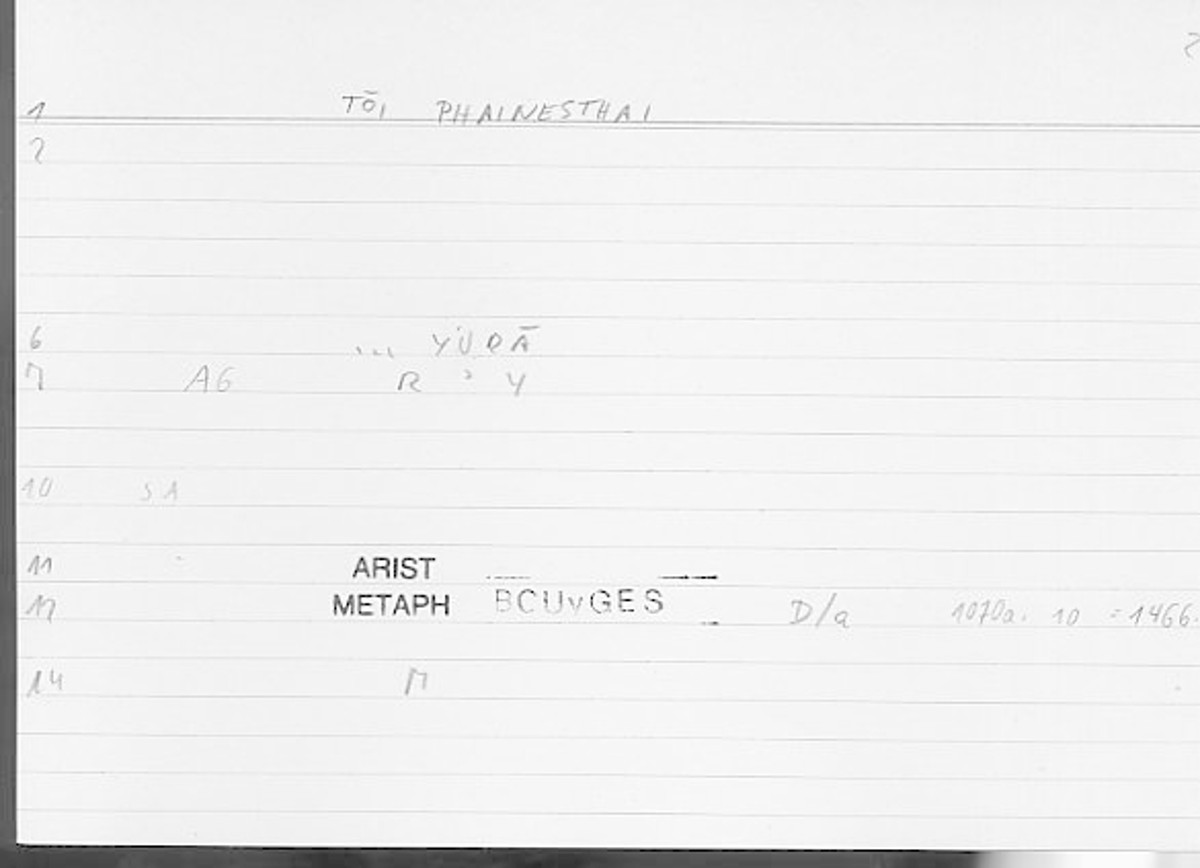 2
1 TŌI PHAINESTHAI
2
6 ... YURĀ
7 A6 R ʾ Y
10 SA
11 ARIST
12 METAPH BCUvGES D/a 1070a. 10 = 1466.
14 M